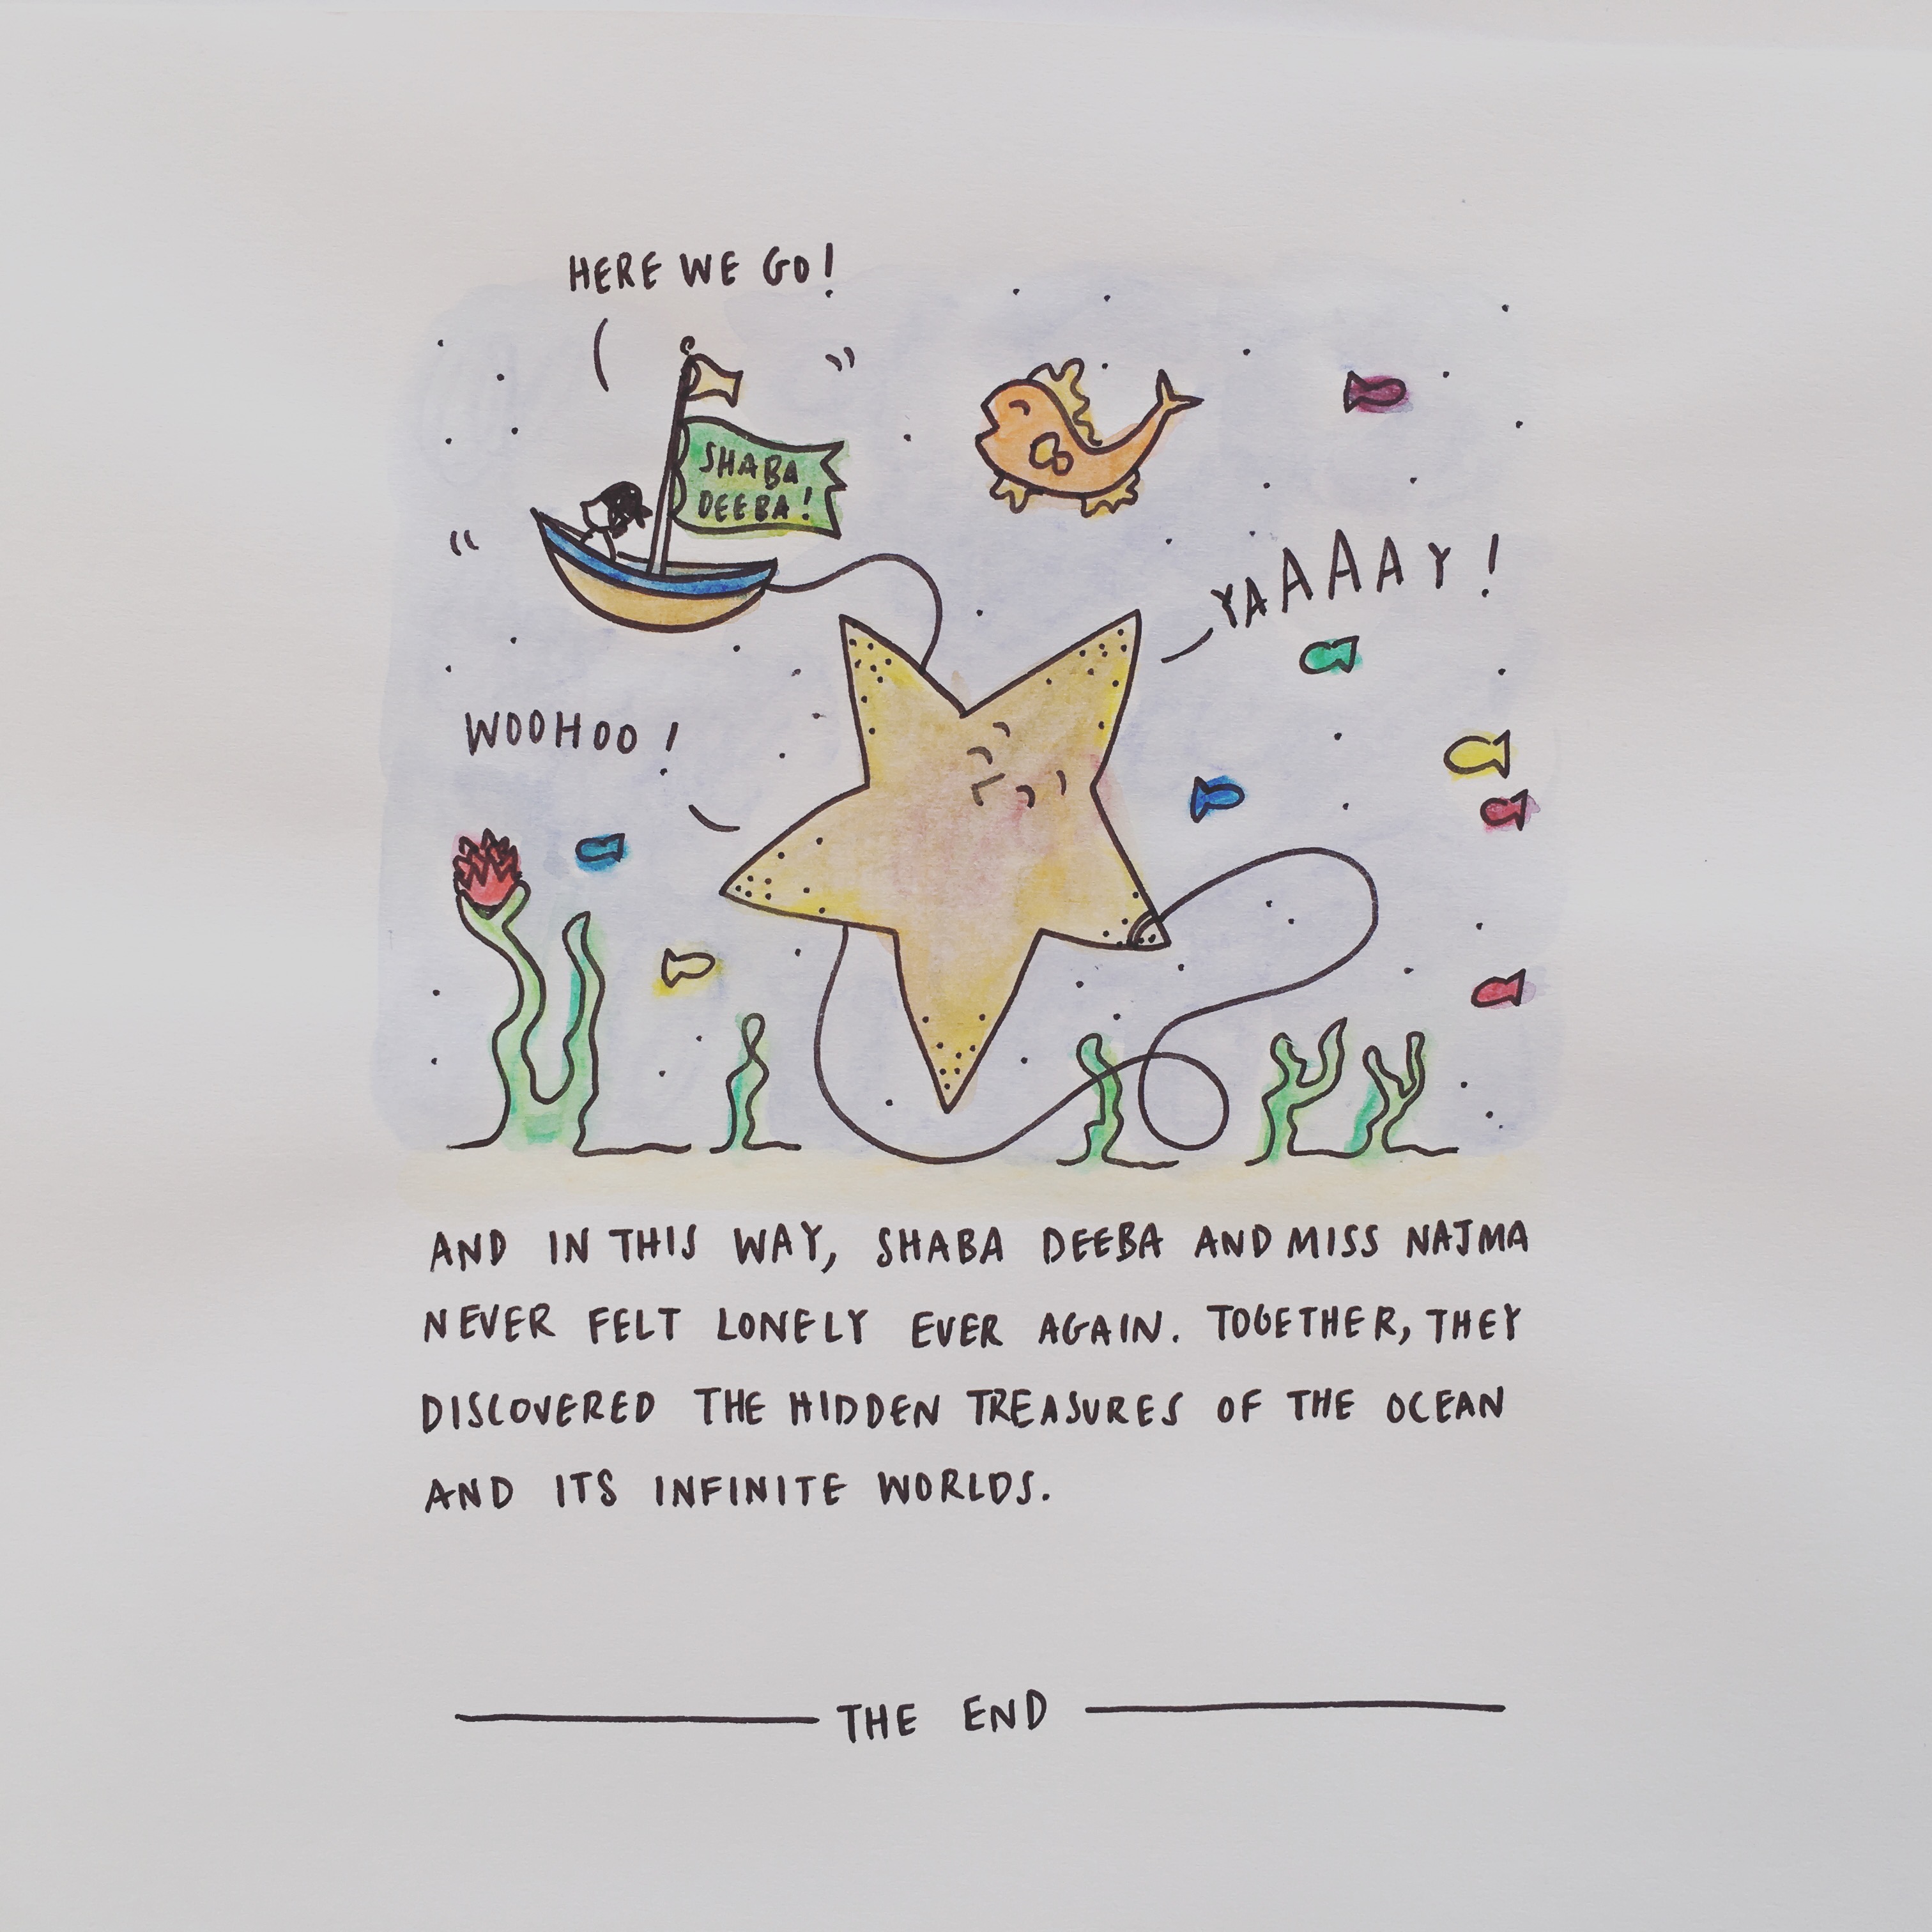 HERE WE GO!
SHABA
DEEBA!
YAAAAAY!
WOOHOO!
AND IN THIS WAY, SHABA DEEBA AND MISS NAJMA
NEVER FELT LONELY EVER AGAIN. TOGETHER, THEY
DISCOVERED THE HIDDEN TREASURES OF THE OCEAN
AND ITS INFINITE WORLDS.
THE END